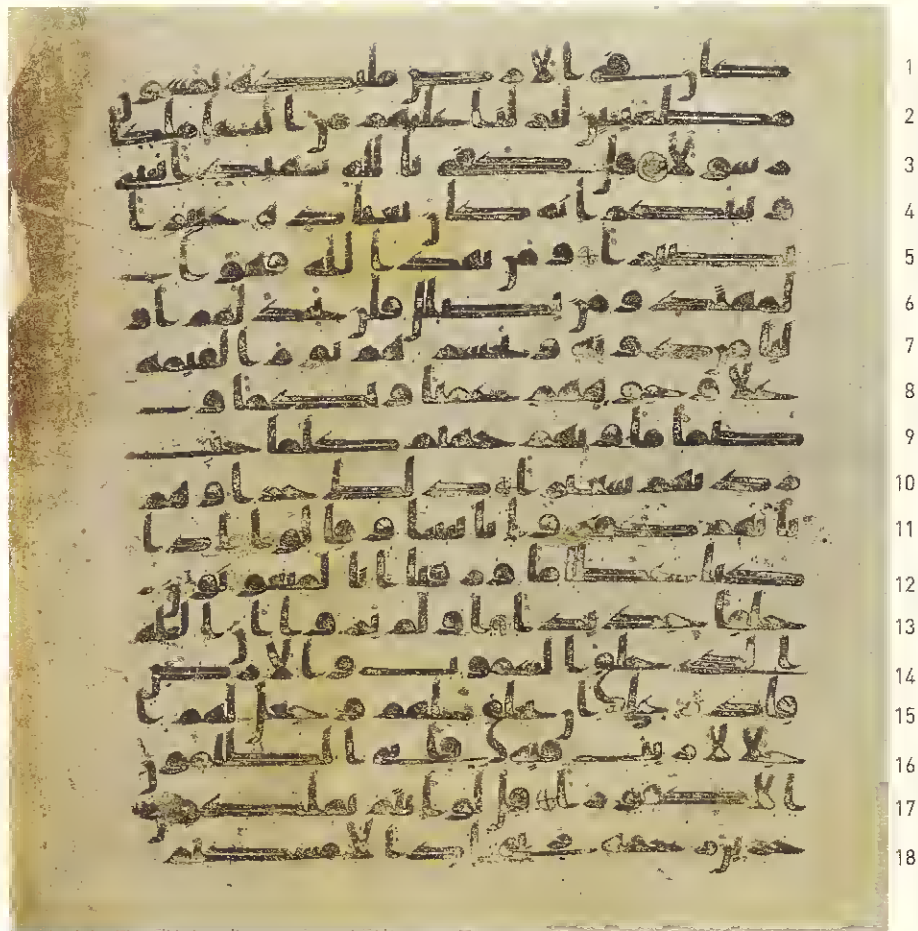 كان في الارض مليكة يمشون 1
مطمينين لنزلنا عليهم من السما ملكا 2
رسولا قل كفى بالله شهيدا بيني 3
وبينكم انه كان بعباده خبيرا 4
بصيرا ومن يهد الله فهو ا 5
لمهتد ومن يضلل فلن تجد لهم او 6
ليا من دونه ونحشرهم يوم القيمة 7
على وجوههم عميا وبكما و 8
صما ماويهم جهنم كلما خبت 9
زدنهم سعيرا ذلك جزاوهم 10
بانهم كفروا بايتنا وقالوا اذا 11
كنا عظاما ورفتا انا لمبعوثون 12
خلقا جديدا اولم يروا ان الله 13
الذي خلق السموت والارض 14
قادر على ان يخلق مثلهم وجعل لهم ا 15
جلا لا ريب فيه فابى الظلمون 16
الا كفورا قل لو انتم تملكون 17
خزاين رحمة ربي اذا لامسكتم 18